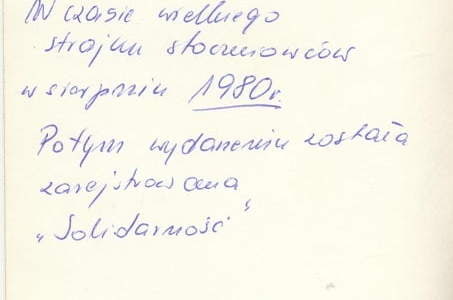 W czasie wielkiego
strajku stoczniowców
w sierpniu 1980r.
Po tym wydarzeniu została
zarejstrowana
„Solidarność"